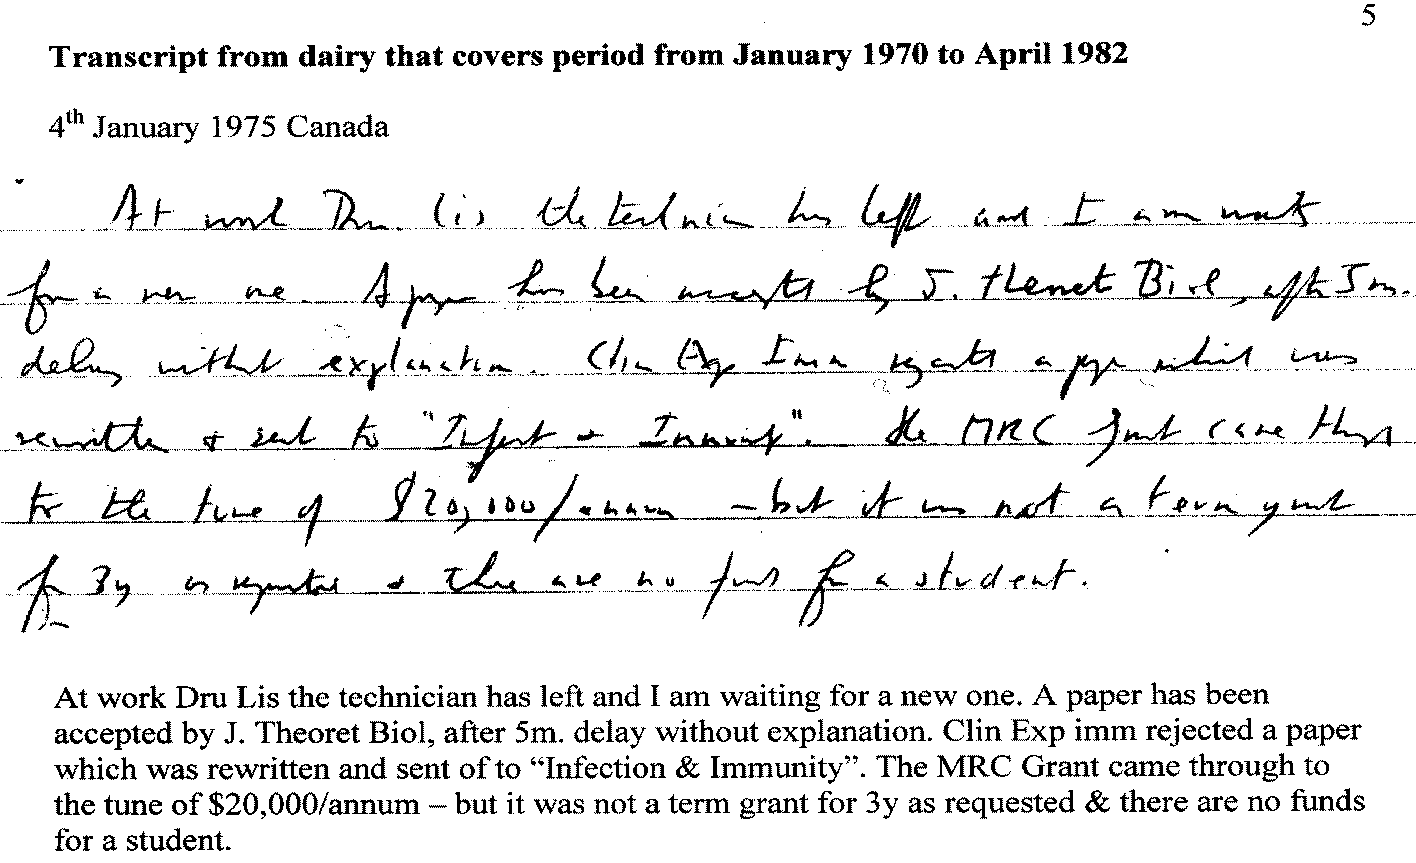 5
Transcript from dairy that covers period from January 1970 to April 1982
4th January 1975 Canada
At work Dru Lis the technician has left and I am waiting
for a new one. A paper has been accepted by J. Theoret Biol, after 5m.
delay without explanation. Clin Exp Imm rejected a paper which was
rewritten & sent to "Infect & Immunity". The MRC Grant came through
to the tune of $20,000/annum – but it was not a term grant
for 3y as requested & there are no funds for a student.
At work Dru Lis the technician has left and I am waiting for a new one. A paper has been
accepted by J. Theoret Biol, after 5m. delay without explanation. Clin Exp imm rejected a paper
which was rewritten and sent of to “Infection & Immunity”. The MRC Grant came through to
the tune of $20,000/annum – but it was not a term grant for 3y as requested & there are no funds
for a student.